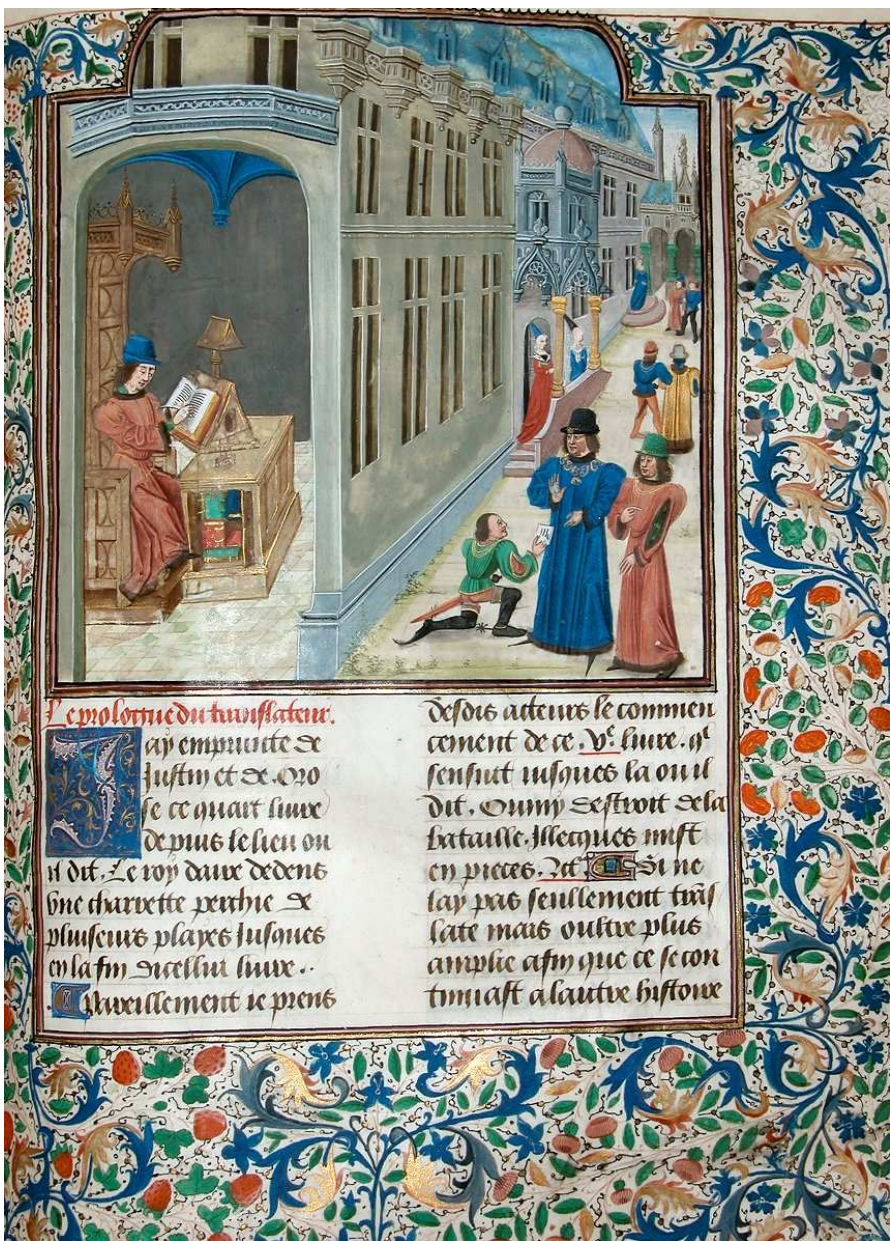 Le prologue du translateur.
Jay emprunte de
Justin et de Oro
se ce quart liure
depuis le lieu ou
il dit. Le roy daire dedens
vne charrette perchie de
pluiseurs playes Jusques
en la fin dicellui liure..
Pareillement ie prens
desdis acteurs le commen
cement de ce .Ve. liure. qͥ
sensuit iusques la ou il
dit. destroit de la
bataille. Illecques mist
en pieces. Si ne
lay pas seullement trãs
late mais oultre plus
amplie afin que ce se con
tinuast a lautre histoire